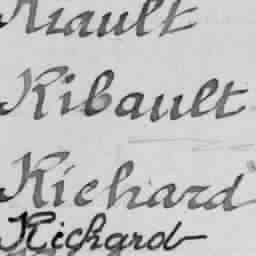 Riault
Ribault
Richard
Richard